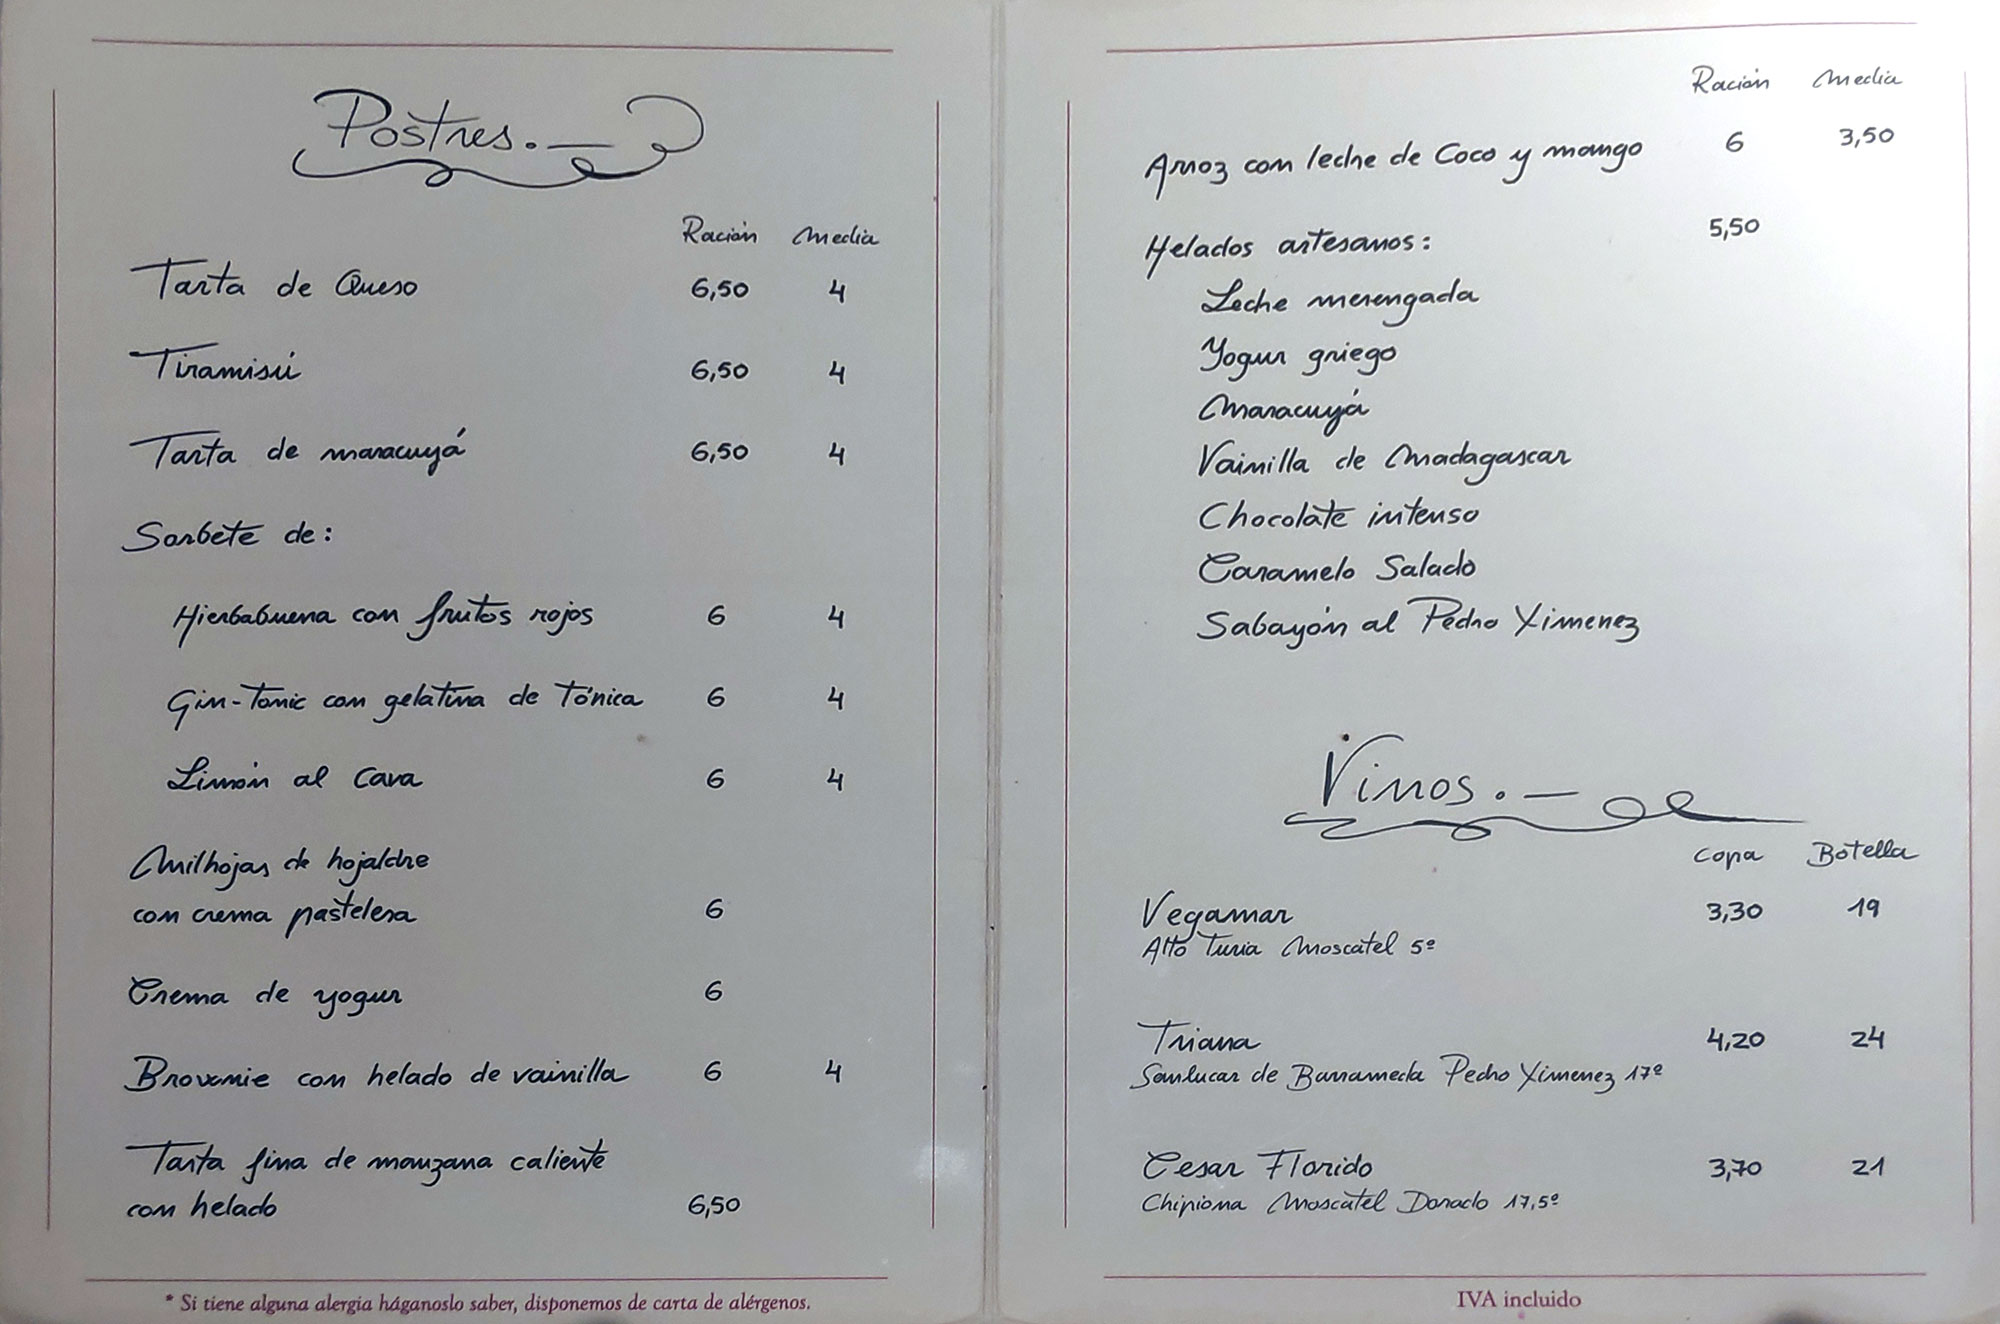 Postres.-
Ración Media
Tarta de Queso 6,50 4
Tiramisú 6,50 4
Tarta de maracuyá 6,50 4
Sorbete de:
Hierbabuena con frutos rojos 6 4
Gin-Tonic con gelatina de Tónica 6 4
Limón al Cava 6 4
Milhojas de hojaldre
con crema pastelera 6
Crema de yogur 6
Brownie con helado de vainilla 6 4
Tarta fina de manzana caliente
con helado 6,50
* Si tiene alguna alergia háganoslo saber, disponemos de carta de alérgenos.
Ración Media
Arroz con leche de Coco y mango 6 3,50
Helados artesanos: 5,50
Leche merengada
Yogur griego
Maracuyá
Vainilla de Madagascar
Chocolate intenso
Caramelo Salado
Sabayón al Pedro Ximenez
Vinos.-
Copa Botella
Vegamar 3,30 19
Alto Turia Moscatel 5º
Triana 4,20 24
Sanlucar de Barrameda Pedro Ximenez 17º
Cesar Florido 3,70 21
Chipiona Moscatel Dorado 17,5º
IVA incluido